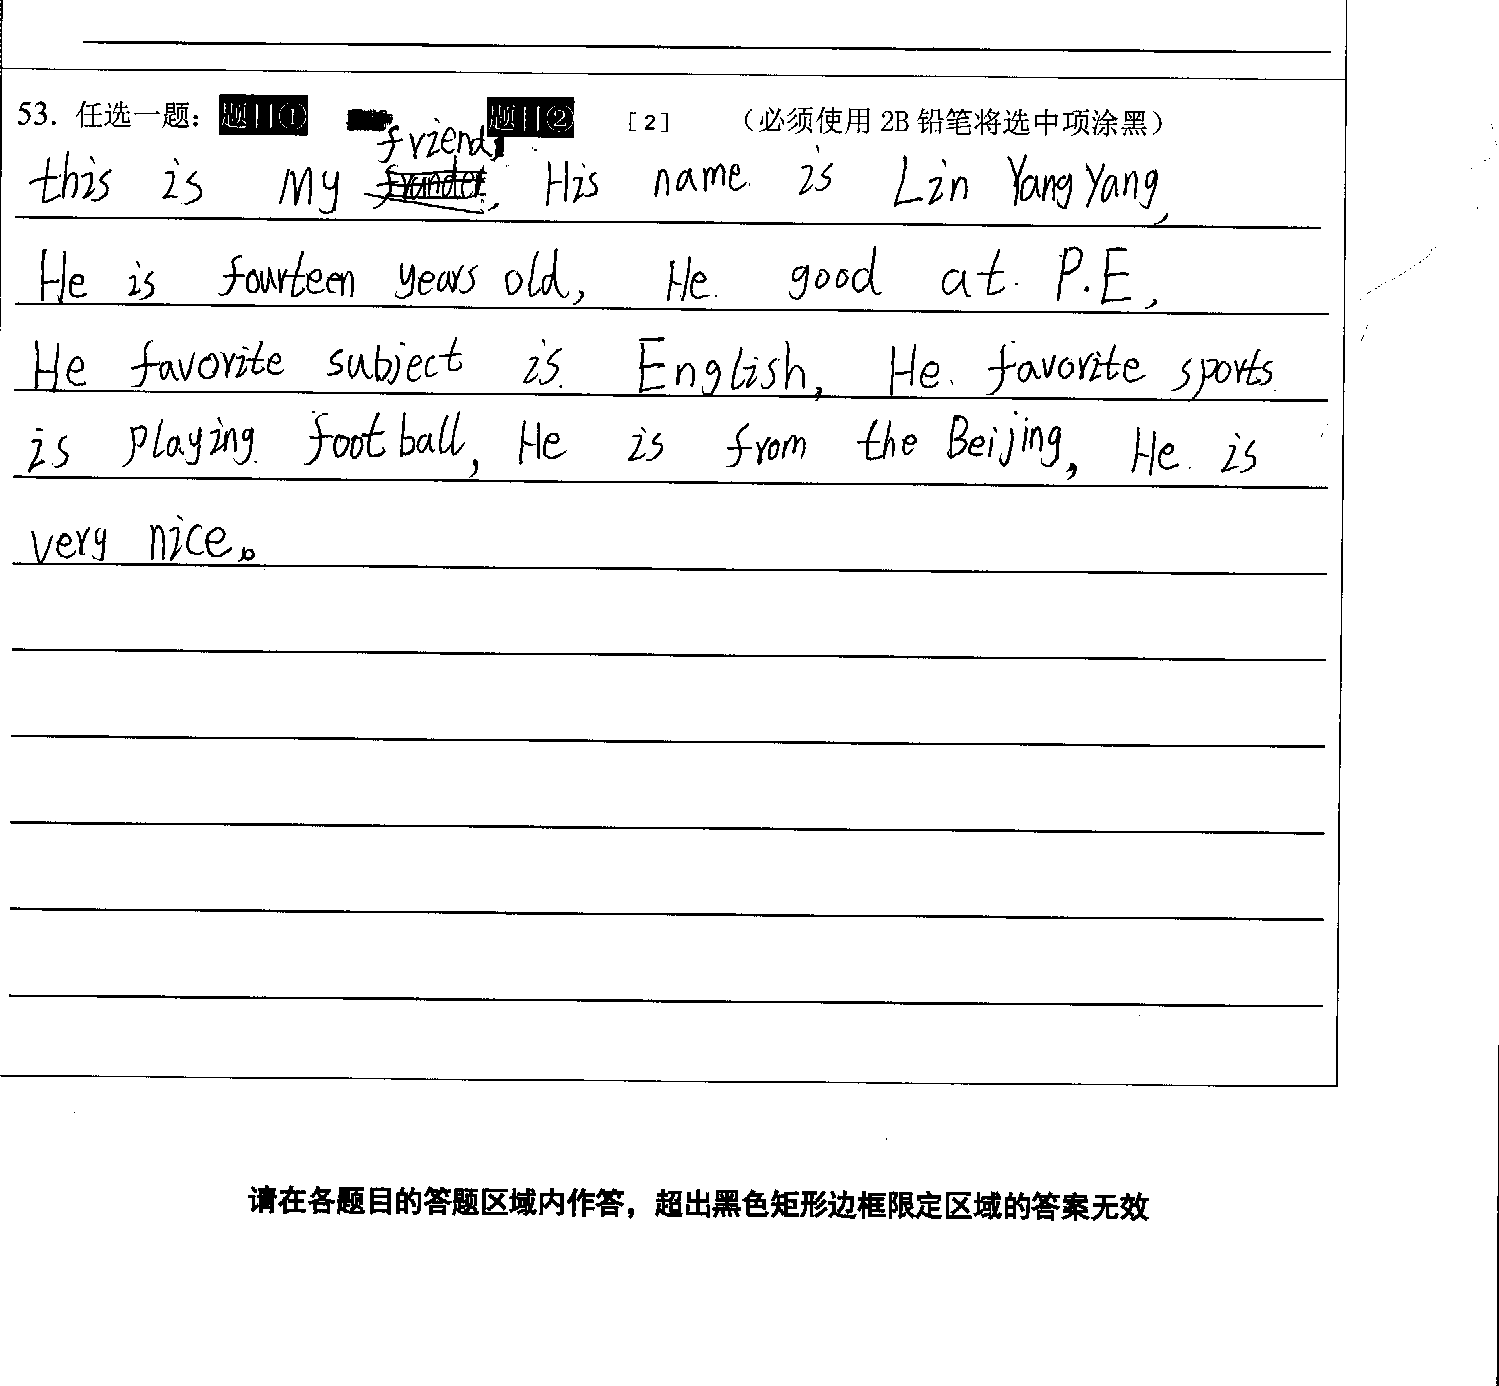 53. 任选一题： 题目① 题目② [2] （必须使用 2B 铅笔将选中项涂黑）
friend,
this is My His name is Lin Yang Yang,
He is fourteen years old, He good at P.E,
He favorite subject is English, He favorite sports
is playing football, He is from the Beijing, He is
very nice。
请在各题目的答题区域内作答，超出黑色矩形边框限定区域的答案无效